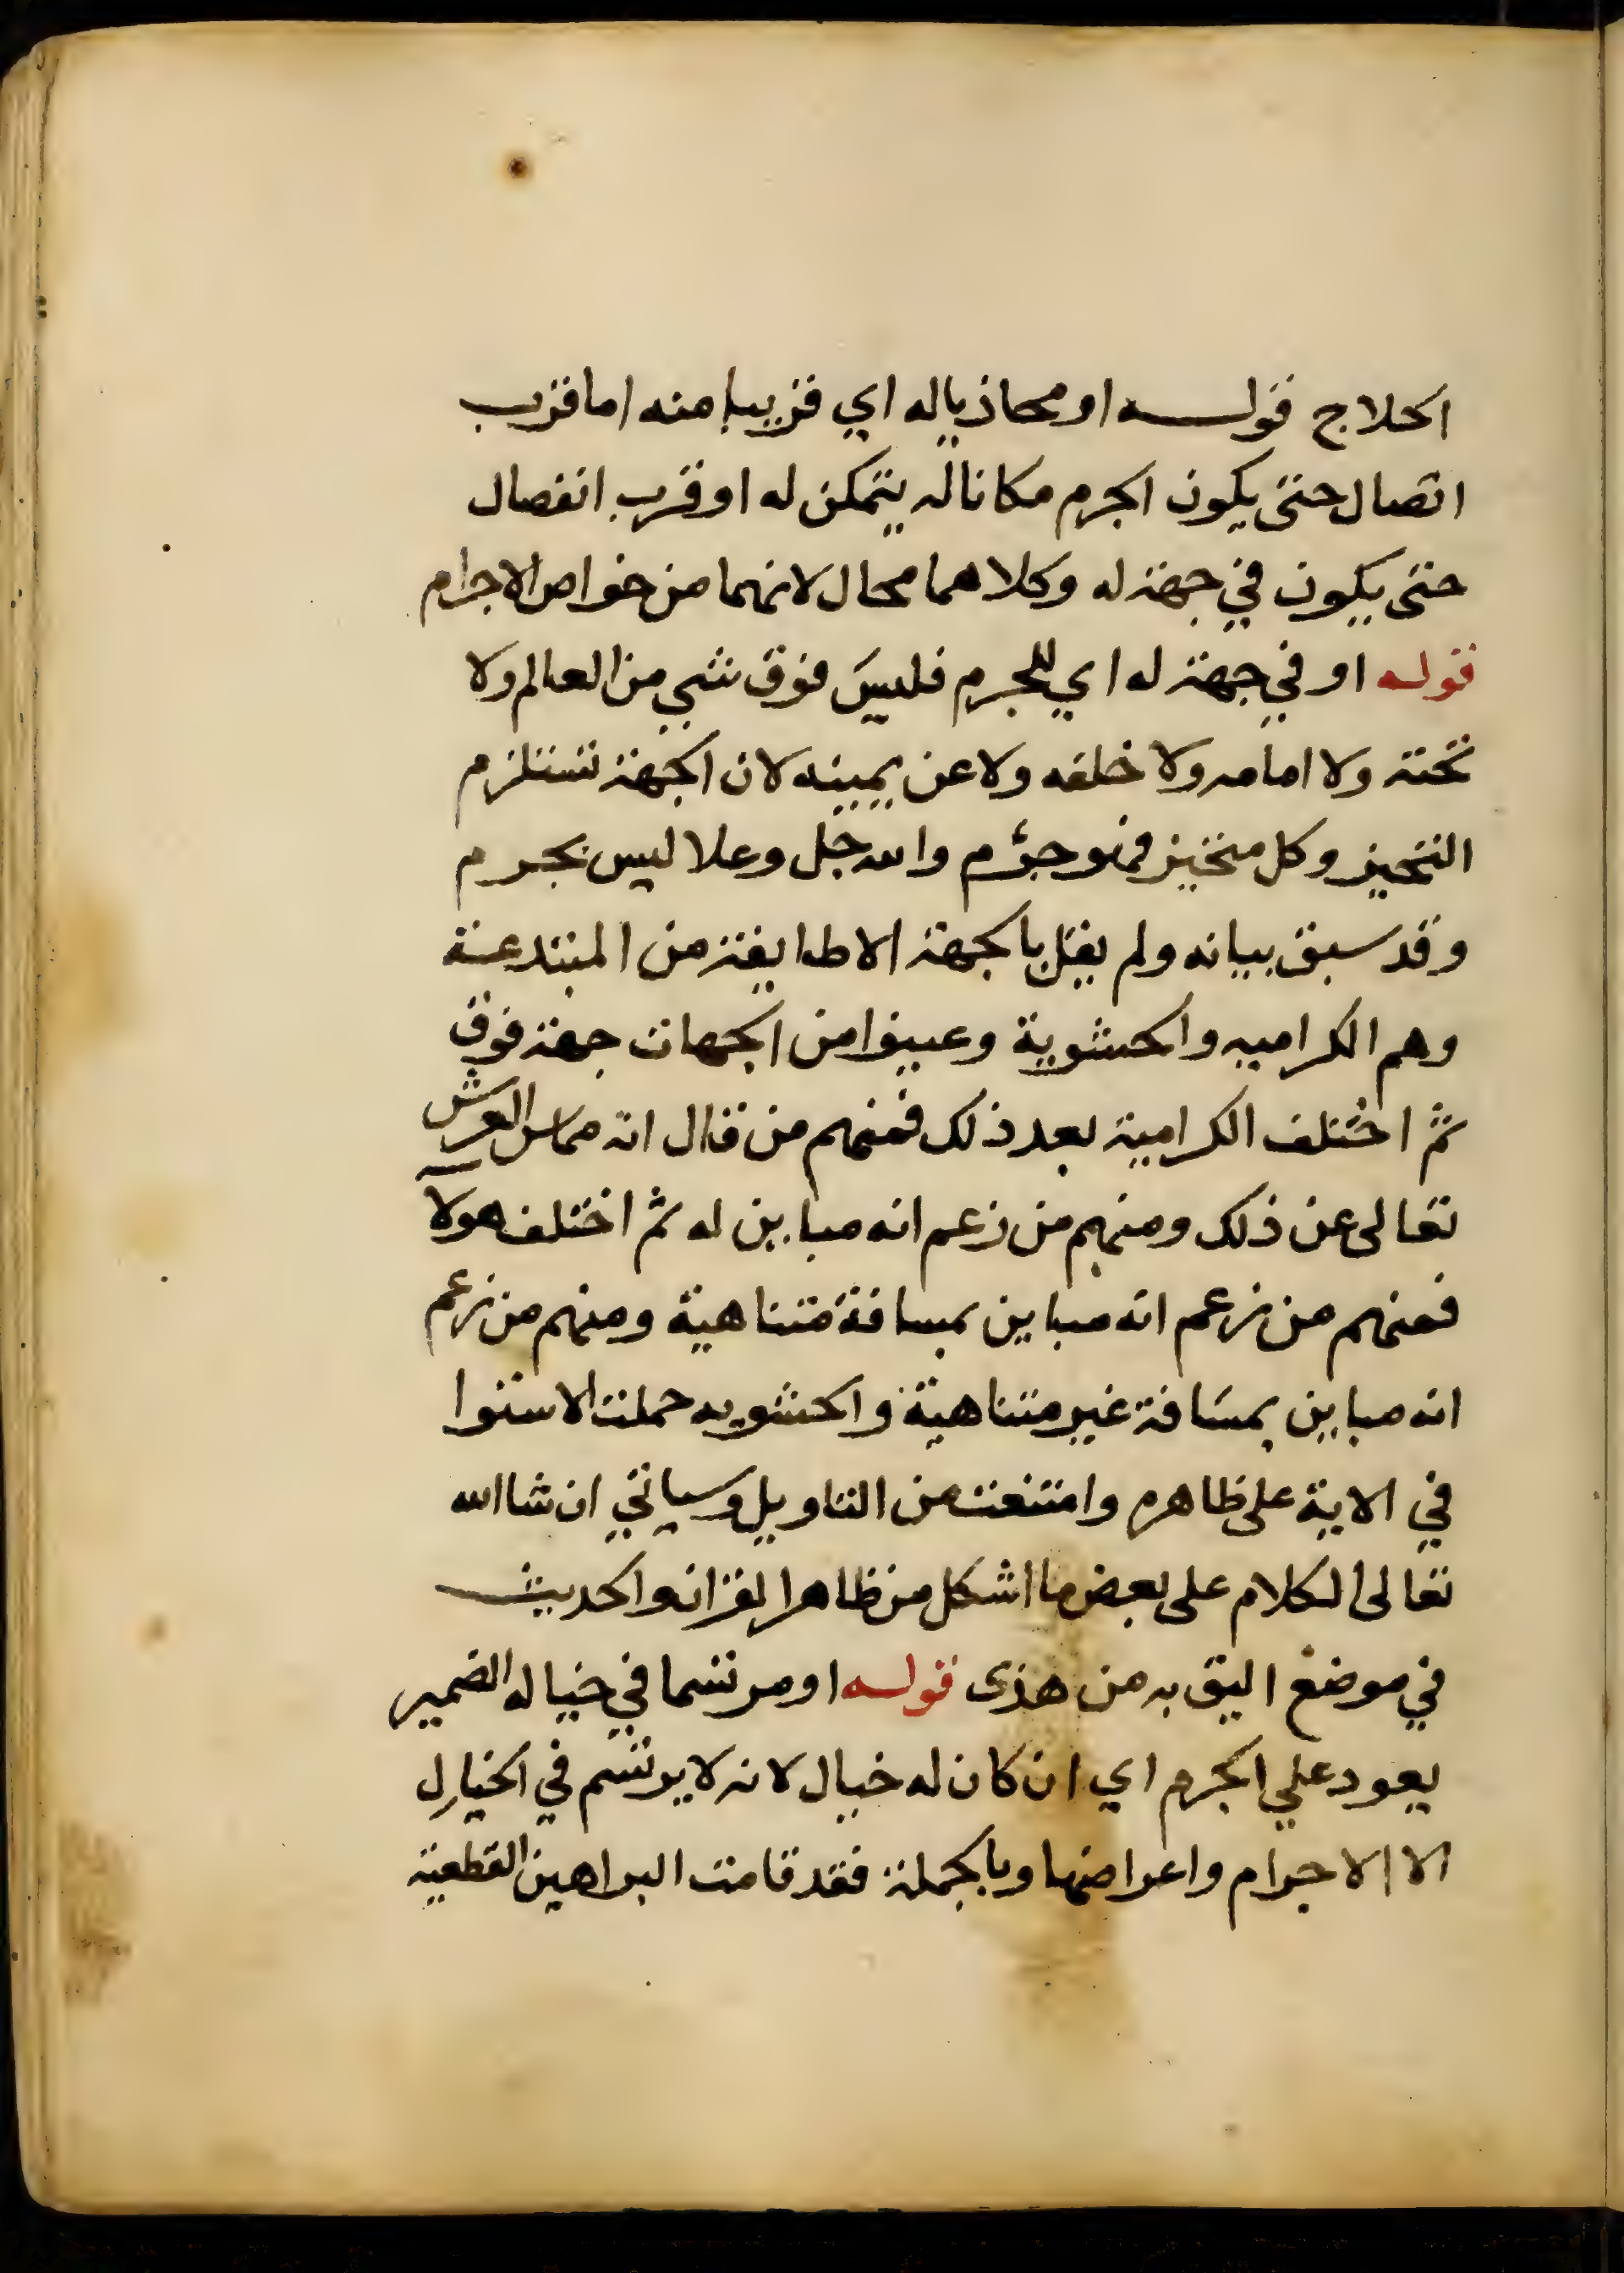 الحلاج قوله او محاذيا له اي قريبا منه اما قرب
اتصال حتى يكون الجرم مكانا له يتمكن له او قرب انفصال
حتى يكون في جهة له وكلاهما محال لانهما من خواص الاجرام
قوله او في جهة له اي للجرم فليس فوق شي من العالم ولا
تحته ولا امامه ولا خلفه ولا عن يمينه لان الجهة تستلزم
التحيز وكل متحيز فهو جرم والله جل وعلا ليس بجرم
وقد سبق بيانه ولم يقل بالجهة الا طايفة من المبتدعة
وهم الكراميه والحشوية وعينوا من الجهات جهة فوق
ثم اختلف الكرامية بعد ذلك فمنهم من قال انه مماس العرش
تعالى عن ذلك ومنهم من زعم انه مباين له ثم اختلف هولا
فمنهم من زعم انه مباين بمسافة متناهية ومنهم من زعم
انه مباين بمسافة غير متناهية والحشويه حملت الاستوا
في الاية على ظاهره وامتنعت من التاويل وسياتي ان شا الله
تعالى الكلام على بعض ما اشكل من ظاهر القران والحديث
في موضع اليق به من هذى قوله او مرتسما في خياله الضمير
يعود علي الجرم اي ان كان له خيال لانه لا يرتسم في الخيال
الا الاجرام واعراضها وبالجملة فقد قامت البراهين القطعية